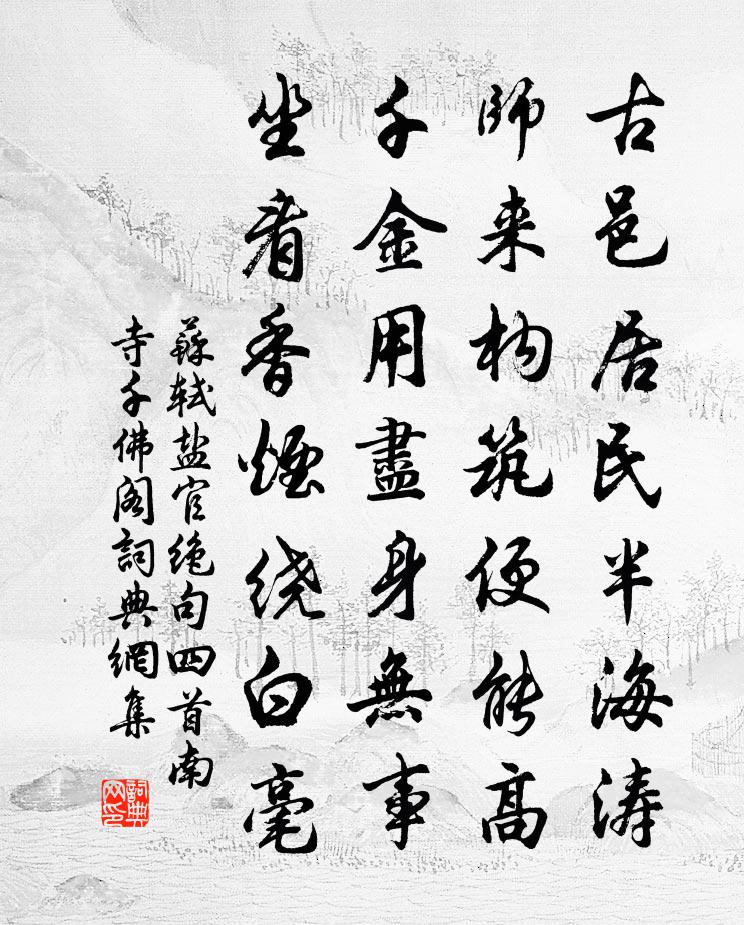 古邑居民半海涛
師来构筑便能高
千金用盡身無事
坐看香煙绕白毫
蘇轼盐官绝句四首南
寺千佛阁詞典網集
詞典
网印